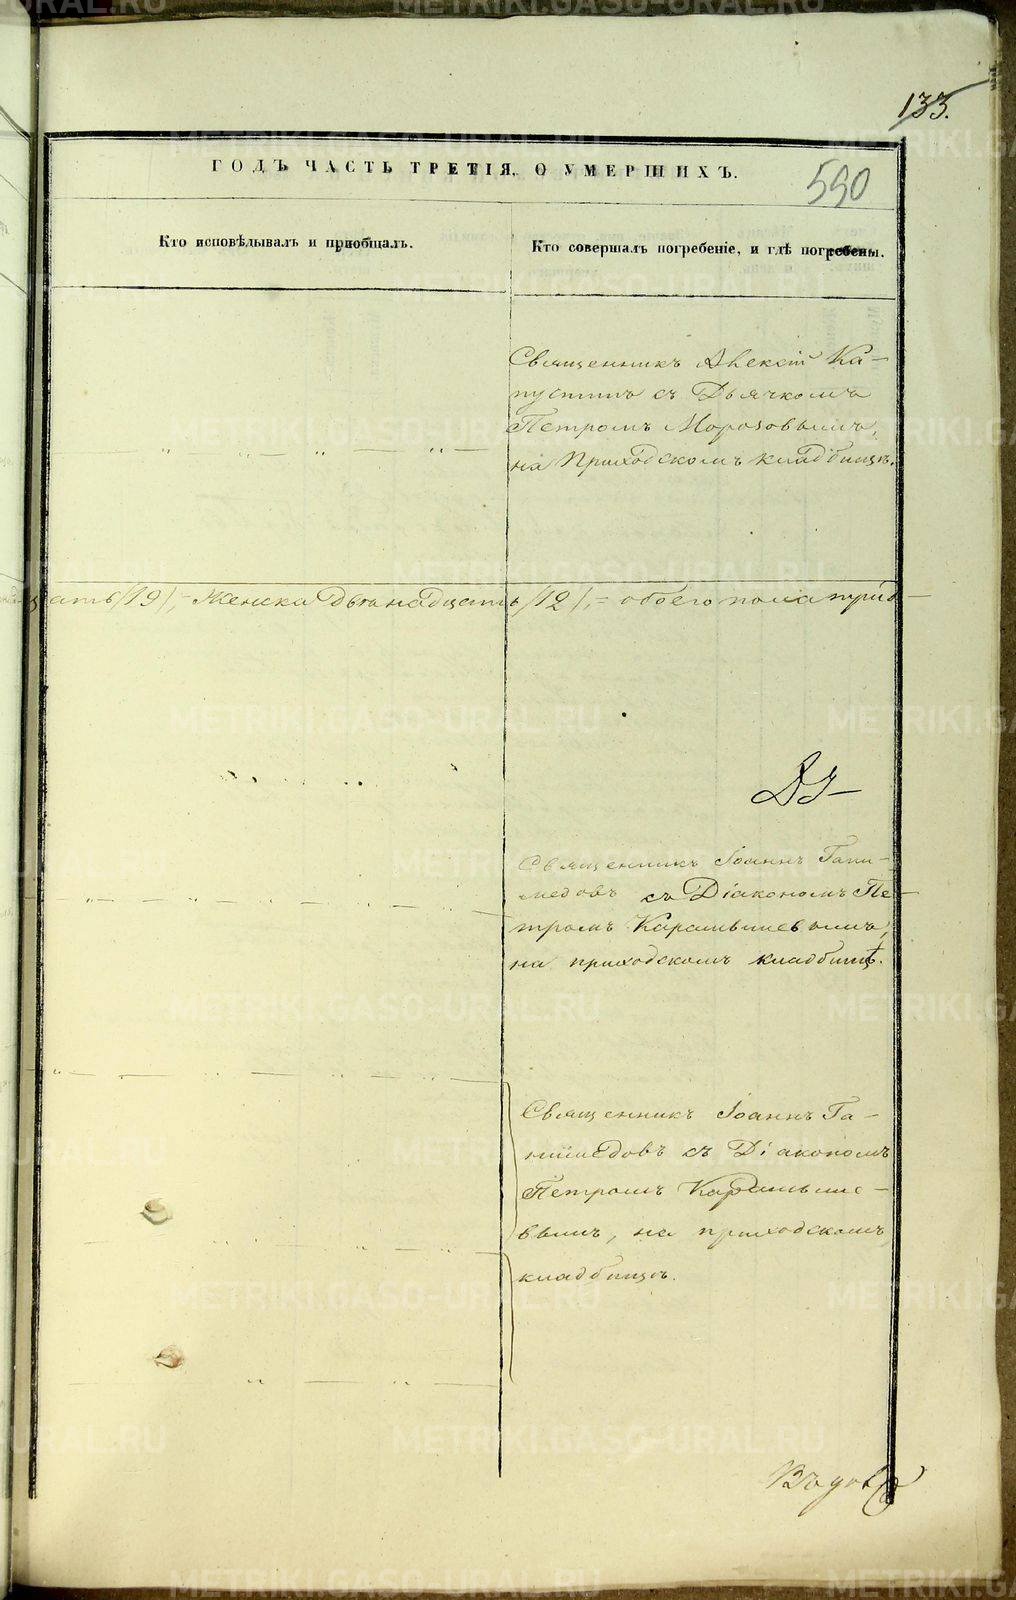 133.
ГОДЪ ЧАСТЬ ТРЕТІЯ, О УМЕРШИХЪ.
590
Кто исповѣдывалъ и пріобщалъ.
Кто совершалъ погребеніе, и гдѣ погребены.
Священникъ Алексій Ка-
пустинъ съ Дьячкомъ
Петромъ Морозовымъ,
на Приходскомъ кладбищѣ.
цать /19/, = Женска двѣнадцать /12/, = обоего пола трид-
Священникъ Іоаннъ Гани-
медовъ съ Діакономъ Пе-
тромъ Карамышевымъ,
на приходскомъ кладбищѣ.
Священникъ Іоаннъ Га-
нимедовъ съ Діакономъ
Петромъ Карамыше-
вымъ, на приходскомъ
кладбищѣ.
METRIKI.GASO-URAL.RU